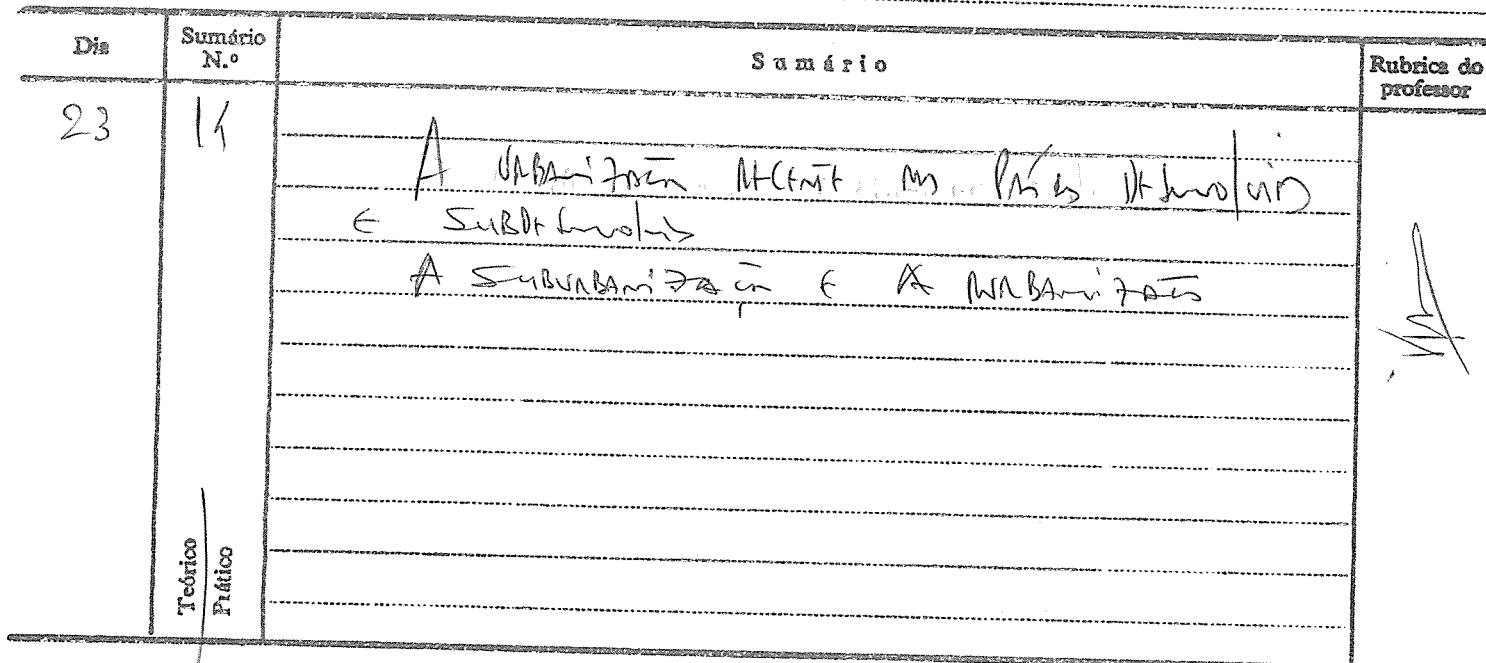 Dia
Sumário N.º
Sumário
Rubrica do professor
23
14
A urbanização recente nos Países desenvolvidos
e subdesenvolvidos
A suburbanização e a rurbanização
Teórico
Prático